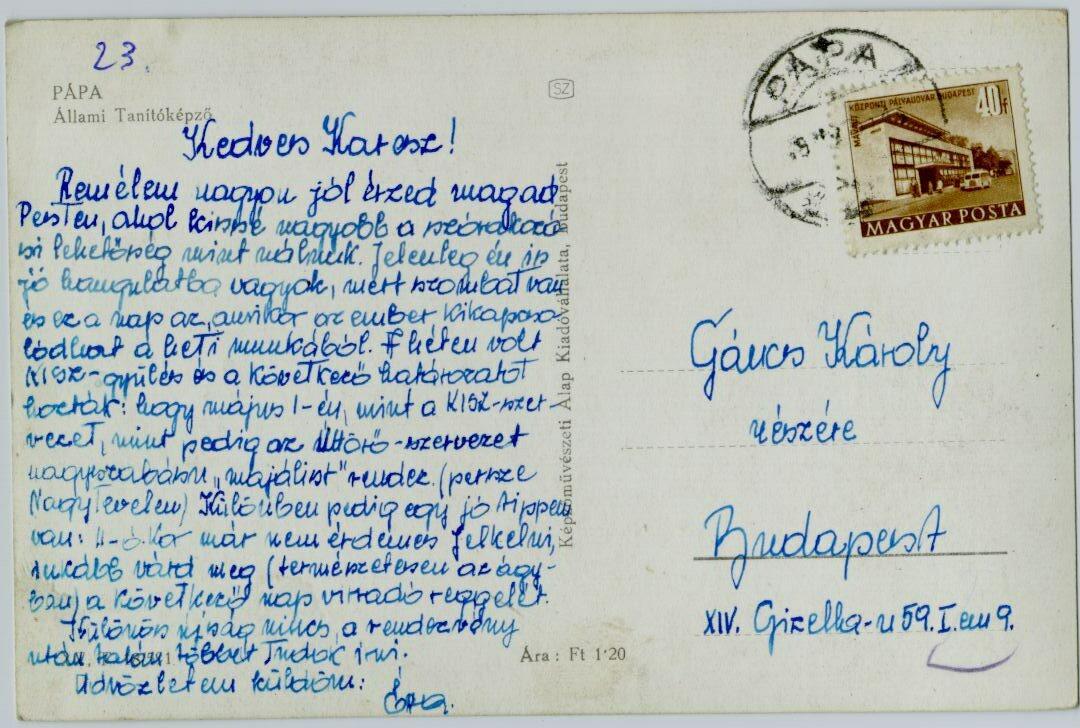 23.
PÁPA
Állami Tanítóképző
SZ
Kedves Karesz!
Remélem nagyon jól érzed magad
Pesten, ahol kissé nagyobb a szórakozá
si lehetőség mint nálunk. Jelenleg én is
jó hangulatba vagyok, mert szombat van
és ez a nap az, amikor az ember kikapcso-
lódhat a heti munkából. E héten volt
KISZ-gyűlés és a következő határozatot
hozták: hogy május 1-én, mint a KISZ-szer-
vezet, mint pedig az Úttörő-szervezet
nagyszabású „majálist" rendez. (persze
Nagytevelen) Különben pedig egy jó tippem
van: 11-ó.kor már nem érdemes felkelni,
inkább várd meg (természetesen az ágy-
ban) a következő nap virradó reggelét.
Különös ujság nincs, a rendezvény
után talán többet tudok irni.
Üdvözletem küldöm:
Éva.
Képzőművészeti Alap Kiadóvállalata, Budapest
Ára : Ft 1·20
PÁPA
MÁVAUT KÖZPONTI PÁLYAUDVAR BUDAPEST
40f
MAGYAR POSTA
Gáncs Károly
részére
Budapest
XIV. Gizella-u 59. I. em 9.